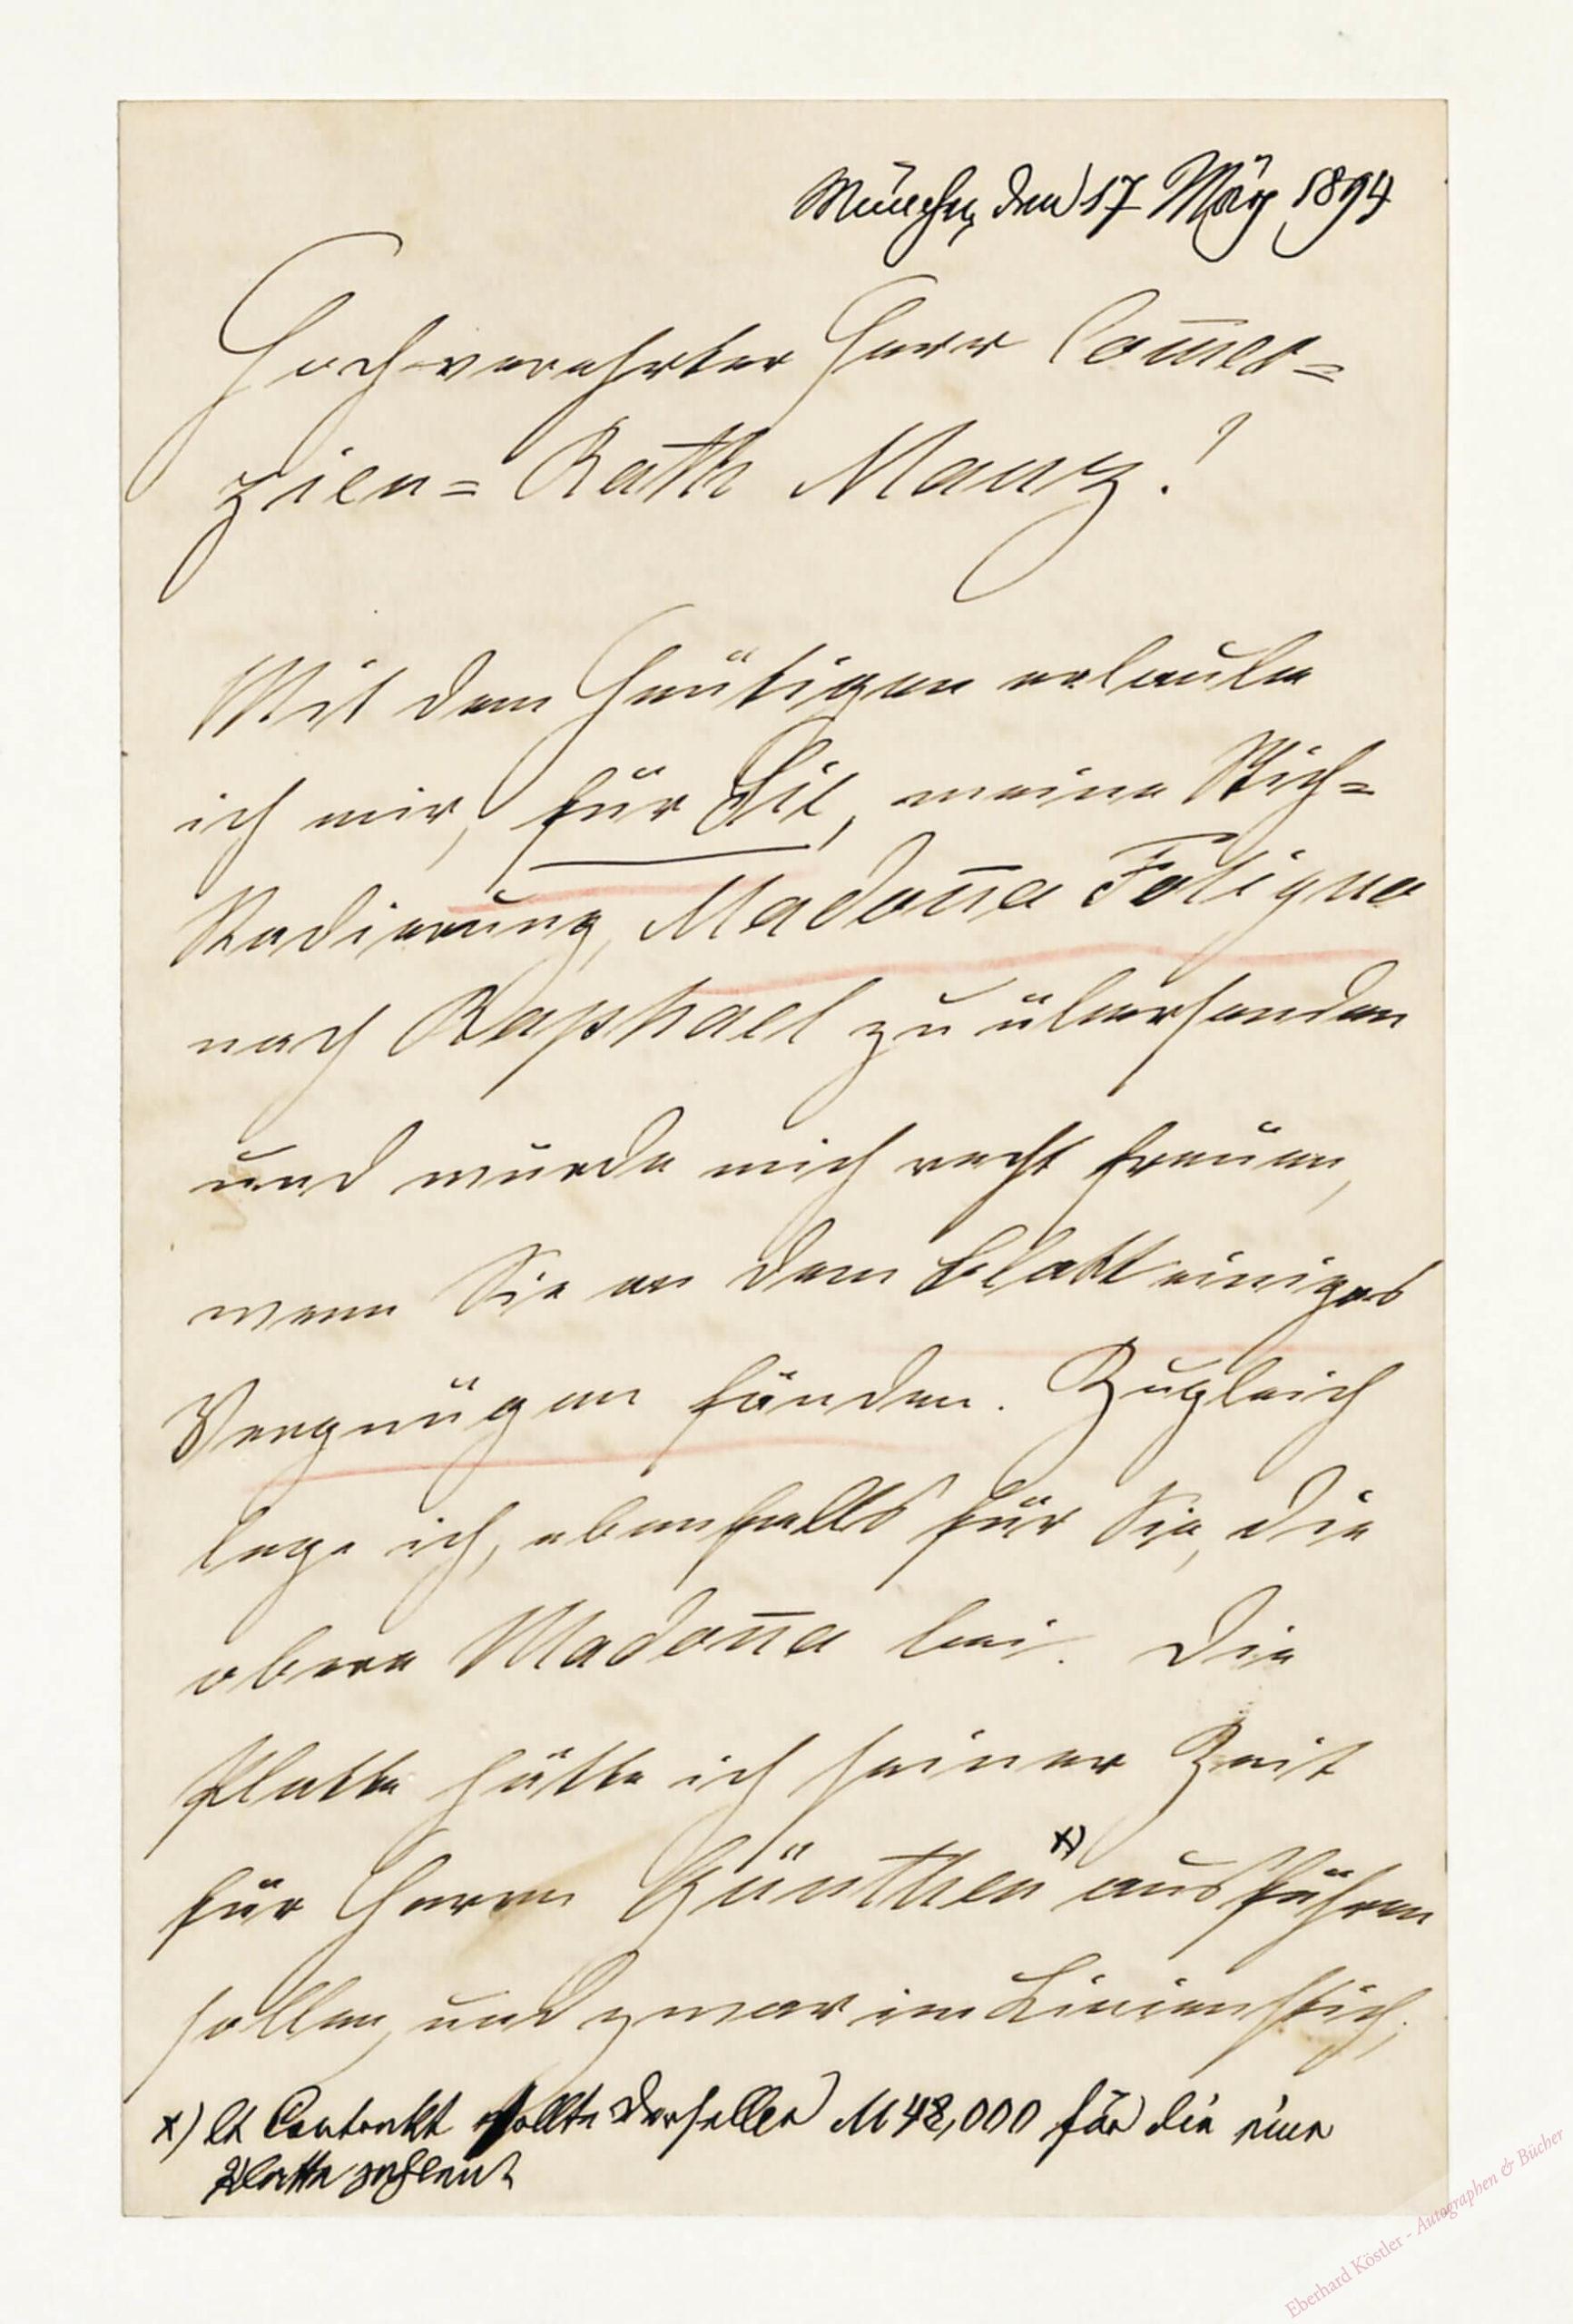 München, den 17 März 1894
Hochverehrter Herr Com̅er=
zien=Rath Manz!
Mit dem Heutigen erlaube
ich mir, für Sie, meine Stich=
Radierung, Mado̅na Foligno
nach Raphael zu übersenden
und würde mich recht freuen,
wenn Sie an dem Blatt einiges
Vergnügen fänden. Zugleich
lege ich, ebenfalls für Sie, die
obere Mado̅na bei. Die
Platte hätte ich seiner Zeit
für Herrn Günther x) ausführen
sollen, und zwar im Linienstich,
x) lt Contrakt sollte derselbe M 48,000 für die eine
Platte
Eberhard Köstler - Autographen & Bücher